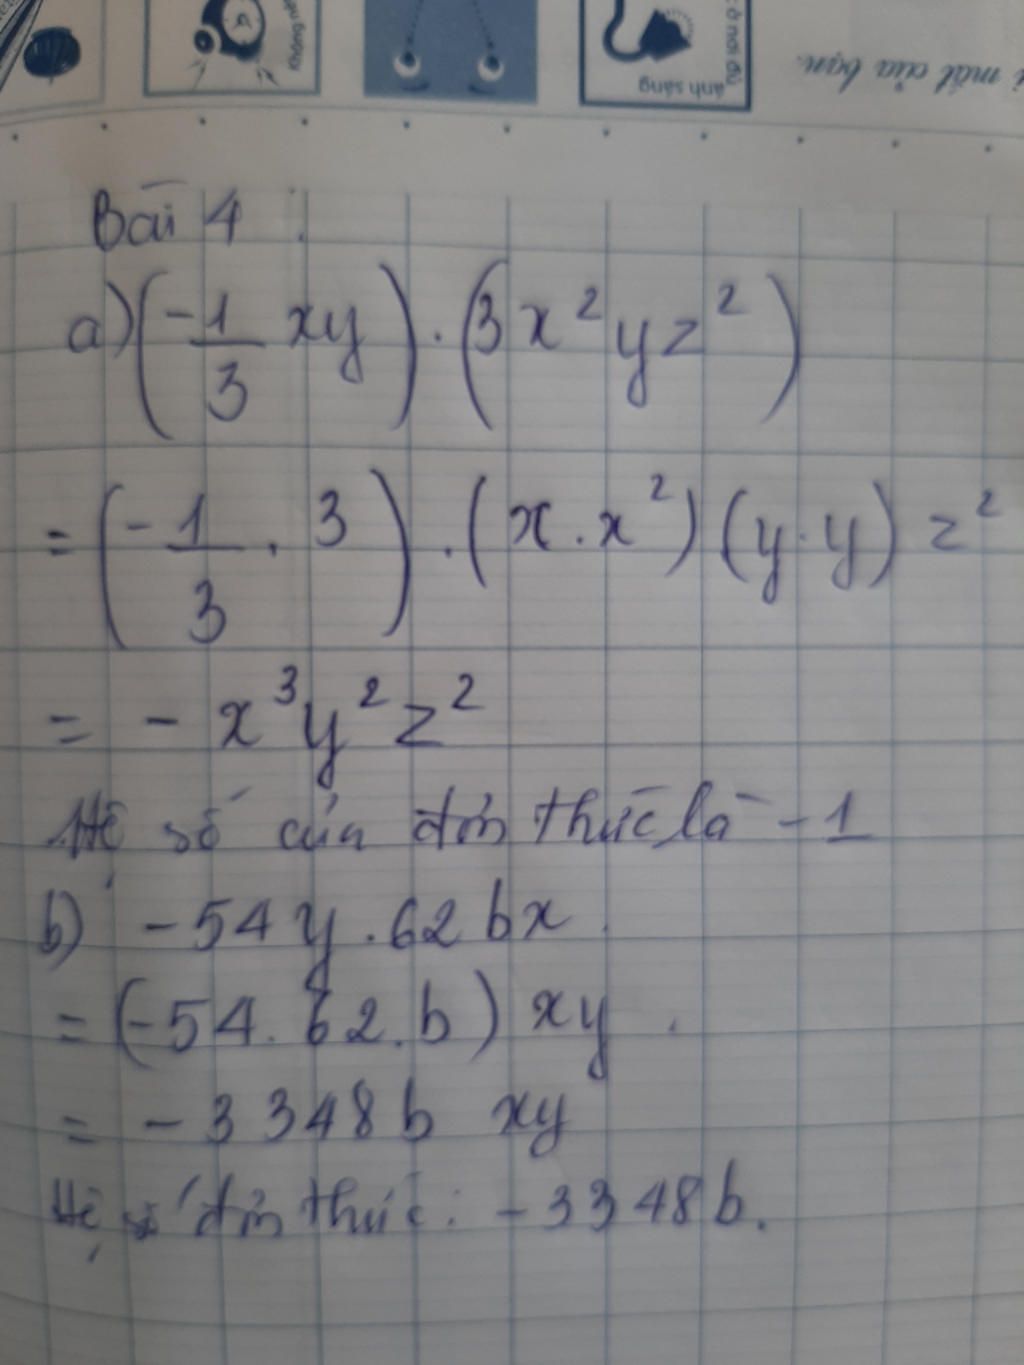 i mắt của bạn.
ở nơi đủ
ánh sáng
Bài 4 :
a) (-1/3 xy) . (3x²yz²)
= (-1/3 . 3) . (x.x²)(y.y) z²
= - x³y²z²
Hệ số của đơn thức là -1
b) -54y.62bx
= (-54.62.b) xy
= -3348b xy
Hệ số đơn thức : -3348b.